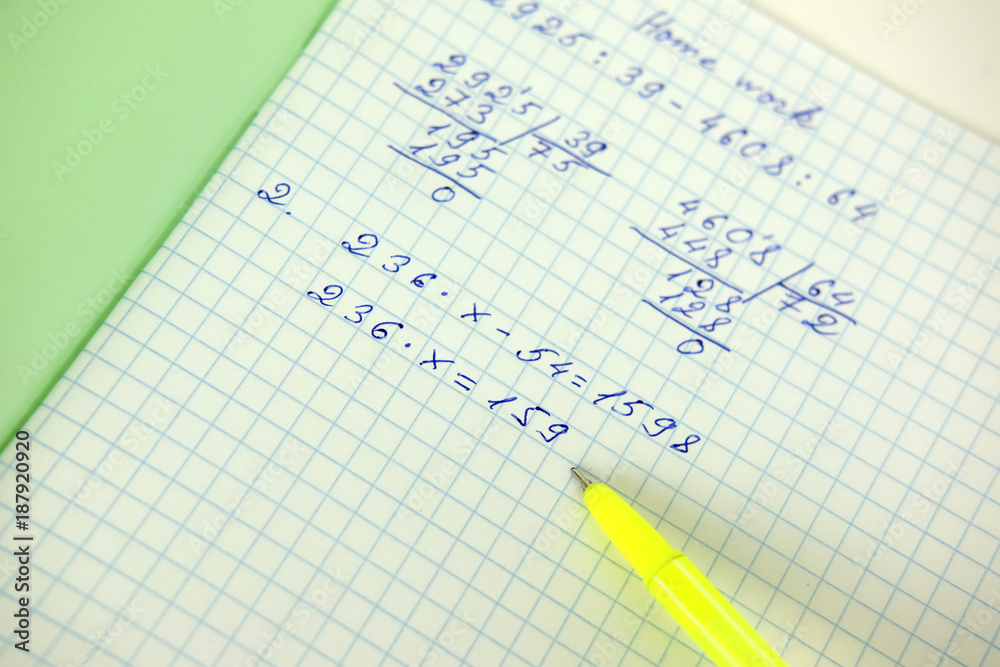 Home work
2925 : 39 - 4608 : 64
2925 39
273 75
195
195
0
4608 64
448 72
128
128
0
2.
236 · x - 54 = 1598
236 · x = 159
Adobe Stock | #187920920